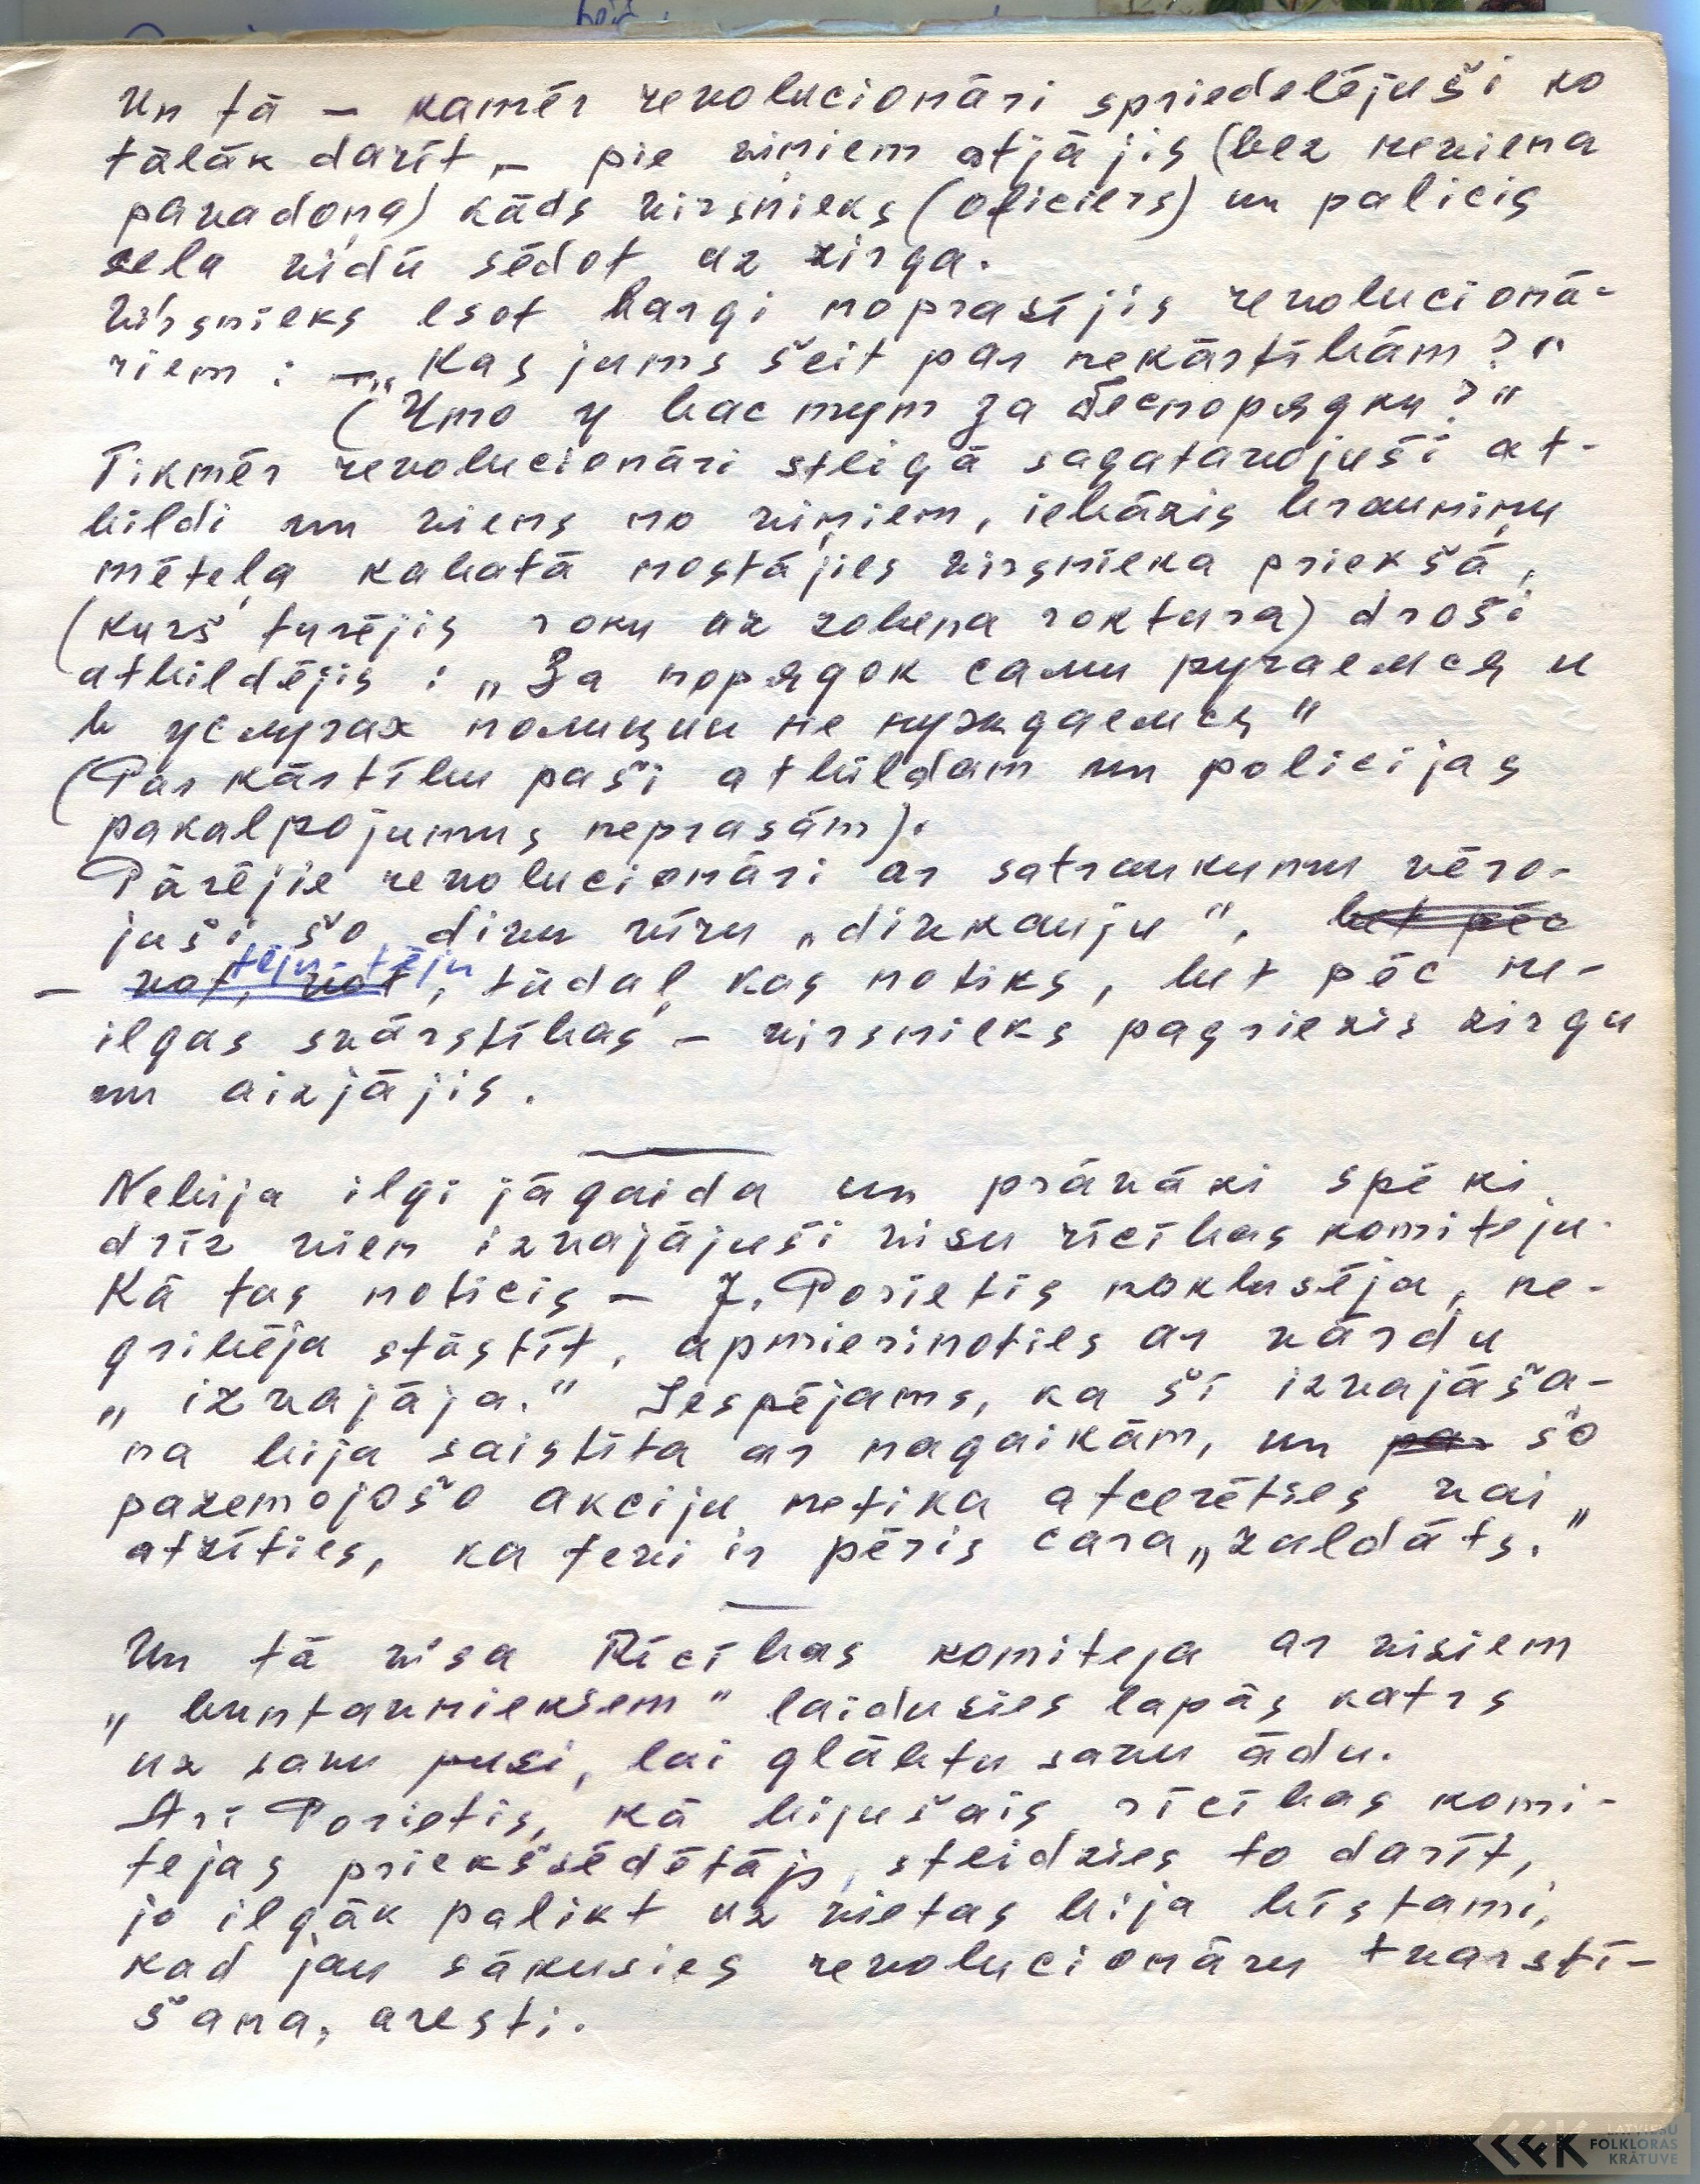 Un tā – kamēr revolucionāri spriedelējuši ko
tālāk darīt, – pie viņiem atjājis (bez neviena
pavadoņa) kāds virsnieks (oficiers) un palicis
ceļa vidū sēdot uz zirga.
Virsnieks esot bargi noprasījis revolucionā-
riem : – „Kas jums šeit par nekārtībām?"
(Что у вас тут за беспорядки?"
Tikmēr revolucionāri steigā sagatavojuši at-
bildi un viens no viņiem, iebāzis brauniņu
mēteļa kabatā nostājies virsnieka priekšā,
(kurš turējis roku uz zobena roktura) droši
atbildējis : „За порядок сами ручаемся и
в услугах полиции не нуждаемся"
(Par kārtību paši atbildam un policijas
pakalpojumus neprasām).
Pārējie revolucionāri ar satraukumu vēro-
juši šo divu vīru „divkauju", bet pēc
tēju, tēju
– vot, vot, tūdaļ kas notiks, bet pēc ne-
ilgas svārstības – virsnieks pagriezis zirgu
un aizjājis.
Nebija ilgi jāgaida un prāvāki spēki
drīz vien izvajājuši visu rīcības komiteju.
Kā tas noticis – J. Porietis noklusēja, ne-
gribēja stāstīt, apmierinoties ar vārdu
„izvajāja." Iespējams, ka šī izvajāša-
na bija saistīta ar nagaikām, un par šo
pazemojošo akciju netika atcerēties vai
atzīties, ka tevi ir pēris cara „zaldāts."
Un tā visa Rīcības komiteja ar visiem
„buntavniekiem" laidusies lapās katrs
uz savu pusi, lai glābtu savu ādu.
Arī Porietis, kā bijušais rīcības komi-
tejas priekšsēdētājs, steidzies to darīt,
jo ilgāk palikt uz vietas bija bīstami,
kad jau sākusies revolucionāru tvarstī-
šana, aresti.
LATVIEŠU
FOLKLORAS
KRĀTUVE